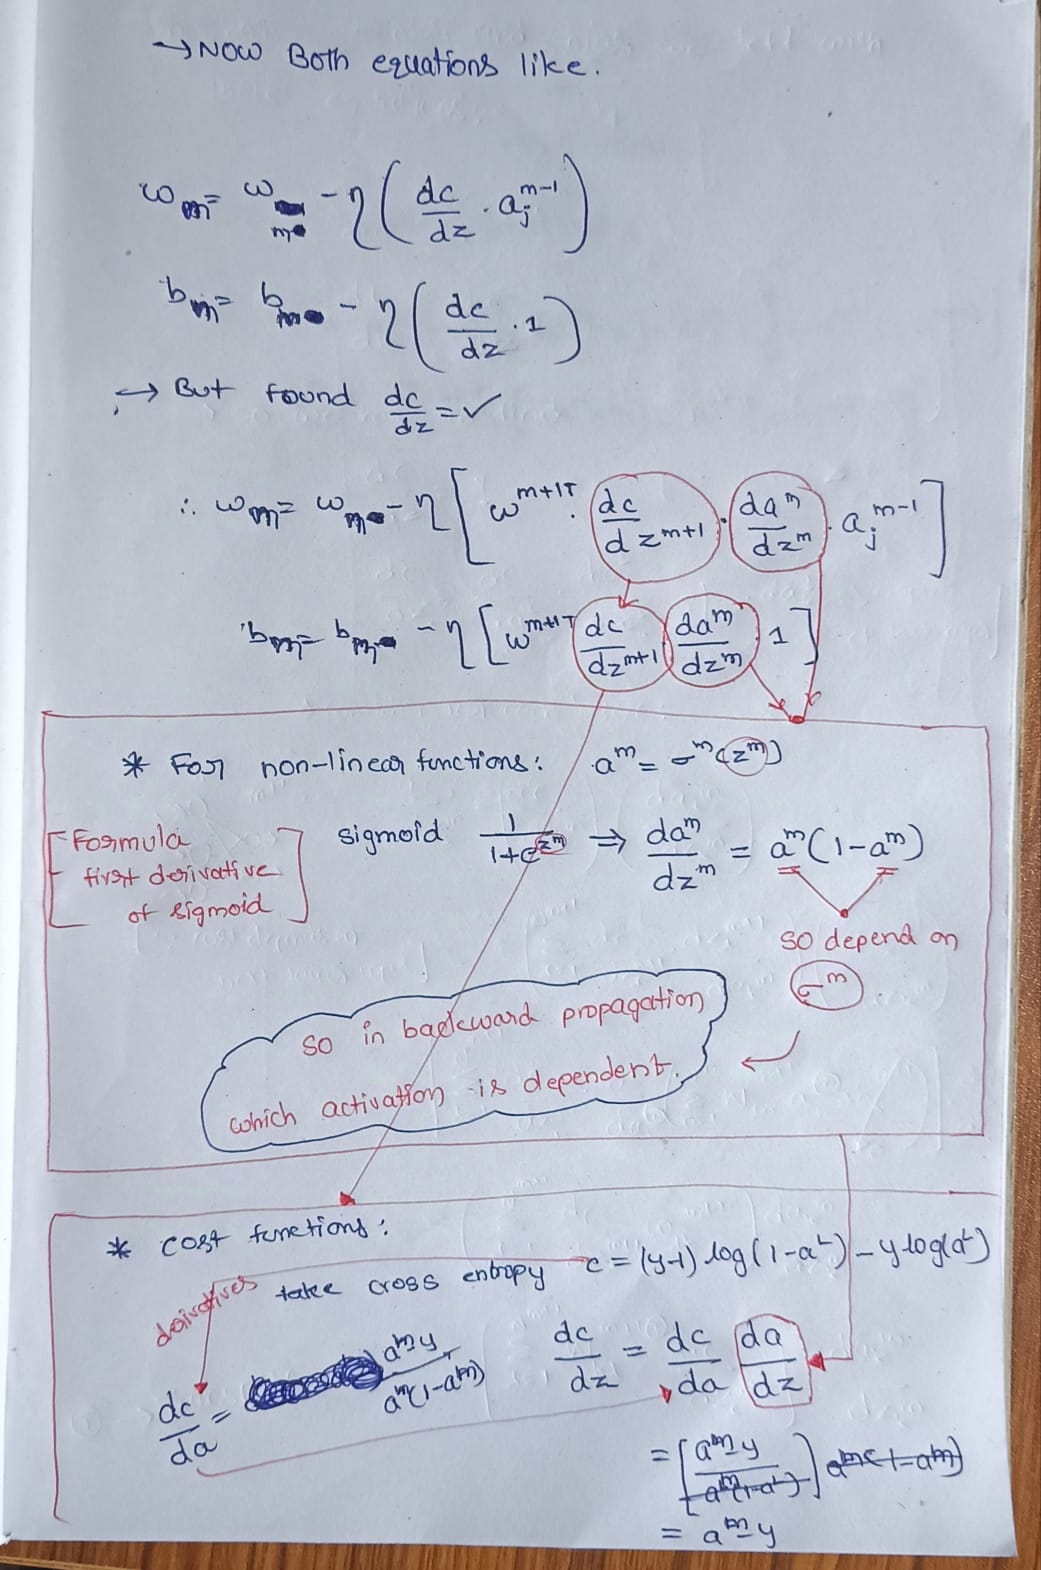 → Now Both equations like.
w_m = w_m - η ( dc/dz · a_j^{m-1} )
b_m = b_m - η ( dc/dz · 1 )
→ But found dc/dz = ✓
∴ w_m = w_m - η [ w^{m+1T} · dc/dz^{m+1} · da^m/dz^m · a_j^{m-1} ]
b_m = b_m - η [ w^{m+1T} dc/dz^{m+1} da^m/dz^m 1 ]
* For non-linear functions: a^m = σ^m (z^m)
[Formula
first derivative
of sigmoid]
sigmoid 1/(1+e^{z^m}) ⇒ da^m/dz^m = a^m (1-a^m)
so depend on
σ^m
so in backward propagation
which activation is dependent.
* cost functions:
derivatives
take cross entropy c = (y-1) log(1-a^L) - y log(a^L)
dc/da = a^m-y/a^m(1-a^m)
dc/dz = dc/da da/dz
= [ a^m-y/a^m(1-a^L) ] a^m(1-a^m)
= a^m-y